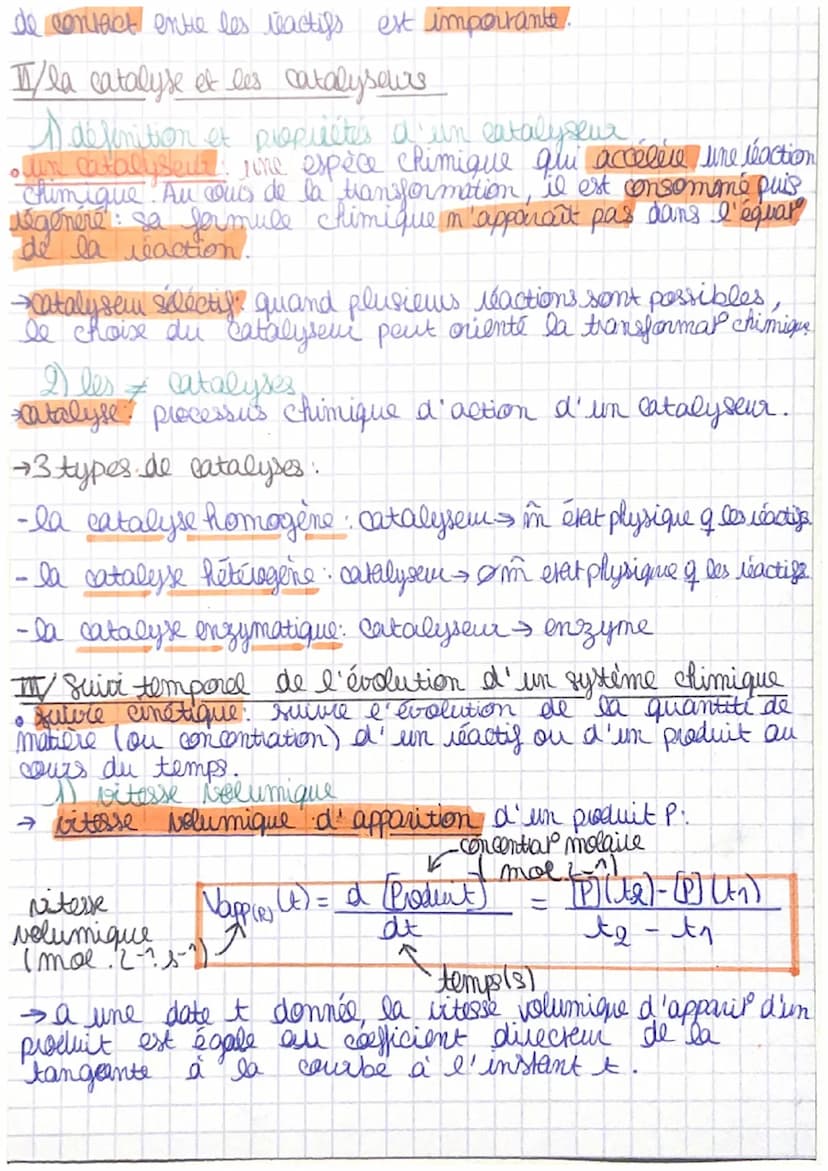 de contact entre les réactifs est importante.
II/ la catalyse et les catalyseurs
1) définition et propriétés d'un catalyseur
• un catalyseur : une espèce chimique qui accélère une réaction
chimique. Au cours de la transformation, il est consommé puis
régénéré : sa formule chimique n'apparaît pas dans l'équat°
de la réaction.
→ catalyseur sélectif : quand plusieurs réactions sont possibles,
le choix du catalyseur peut orienté la transformat° chimique
2) les ≠ catalyses
→ catalyse : processus chimique d'action d'un catalyseur.
→ 3 types de catalyses :
- la catalyse homogène : catalyseur → m̂ état physique q les réactifs.
- la catalyse hétérogène : catalyseur → ∅ m̂ etat physique q les réactifs
- la catalyse enzymatique : catalyseur → enzyme
III/ Suivi temporel de l'évolution d'un système chimique
• suivre cinétique : suivre l'évolution de la quantité de
matière (ou concentration) d'un réactif ou d'un produit au
cours du temps.
1) vitesse volumique
→ vitesse volumique d'apparition d'un produit P :
concentrat° molaire
(mol.L⁻¹)
vitesse
volumique
(mol.L⁻¹.s⁻¹)
Vapp(P)(t) = d [Produit] / dt = [P](t2) - [P](t1) / t2 - t1
temps(s)
→ a une date t donnée, la vitesse volumique d'apparit° d'un
produit est égale au coefficient directeur de la
tangeante à la courbe à l'instant t.